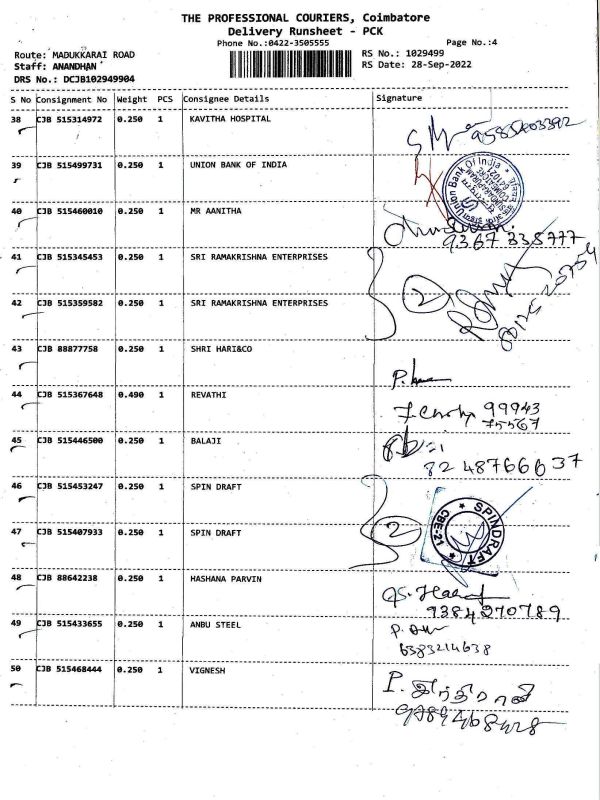 THE PROFESSIONAL COURIERS, Coimbatore
Delivery Runsheet - PCK
Phone No.:0422-3505555 Page No.:4
Route: MADUKKARAI ROAD RS No.: 1029499
Staff: ANANDHAN RS Date: 28-Sep-2022
DRS No.: DCJB102949904
S No Consignment No Weight PCS Consignee Details Signature
38 CJB 515314972 0.250 1 KAVITHA HOSPITAL
39 CJB 515499731 0.250 1 UNION BANK OF INDIA
Union Bank Of India
40 CJB 515460010 0.250 1 MR AANITHA
9367 335777
41 CJB 515345453 0.250 1 SRI RAMAKRISHNA ENTERPRISES
2
42 CJB 515359582 0.250 1 SRI RAMAKRISHNA ENTERPRISES
43 CJB 88877758 0.250 1 SHRI HARI&CO
44 CJB 515367648 0.490 1 REVATHI
99943
75567
45 CJB 515446500 0.250 1 BALAJI
8248766637
46 CJB 515453247 0.250 1 SPIN DRAFT
SPINDRAFT
CBE-21
47 CJB 515407933 0.250 1 SPIN DRAFT
2
48 CJB 88642238 0.250 1 HASHANA PARVIN
9384270789
49 CJB 515433655 0.250 1 ANBU STEEL
6383214638
50 CJB 515468444 0.250 1 VIGNESH